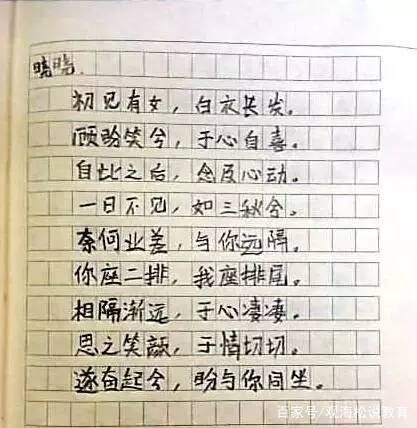 晓晓.
初见有女，白衣长发。
顾盼笑兮，于心自喜。
自此之后，念及心动。
一日不见，如三秋兮。
奈何业差，与你远隔。
你座二排，我座排尾。
相隔渐远，于心凄凄。
思之笑颜，于情切切。
遂奋起兮，盼与你同坐。
百家号/观海松说教育